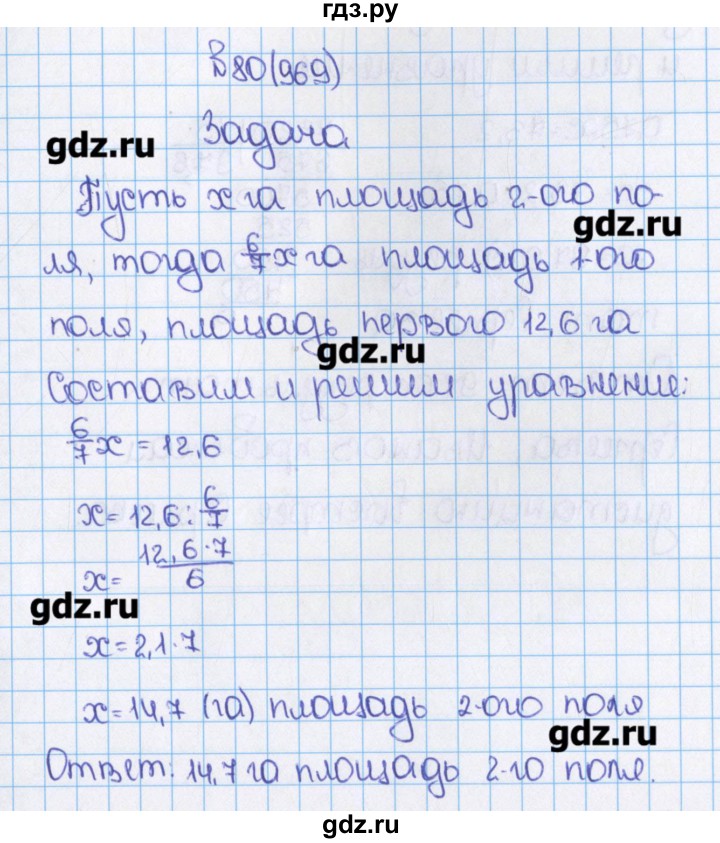 гдз.ру
№80(969)
Задача
gdz.ru
Пусть x га площадь 2-ого по-
gdz.ru
ля, тогда 6/7 x га площадь 1-ого
поля, площадь первого 12,6 га
gdz.ru
Составим и решим уравнение:
6/7 x = 12,6
x = 12,6 : 6/7
x = 12,6·7/6
gdz.ru
x = 2,1·7
x = 14,7 (га) площадь 2-ого поля
gdz.ru
Ответ: 14,7 га площадь 2-го поля.
gdz.ru